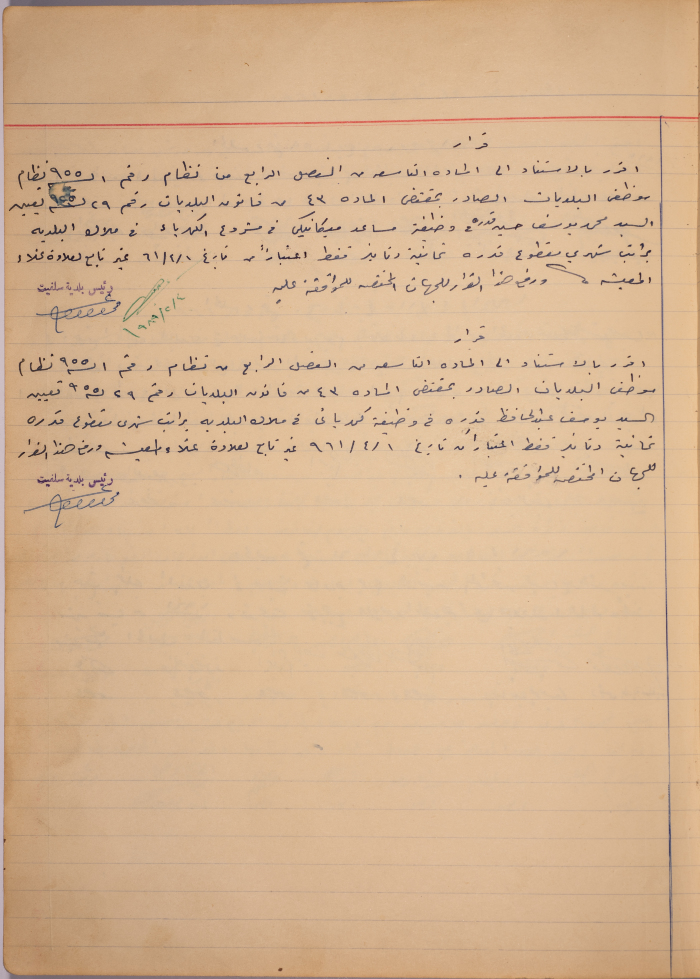 قرار
اقرر بالاستناد الى المادة التاسعه من الفصل الرابع من نظام رقم لسنة ٩٥٥ نظام
موظفي البلديات الصادر بمقتضى الماده ٤٣ من قانون البلديات رقم ٢٩ لسنة ٩٥٥ تعيين
السيد محمد يوسف حسين قدره في وظيفة مساعد ميكانيكي في مشروع الكهرباء في ملاك البلديه
براتب شهري مقطوع قدره ثمانية دنانير فقط اعتبارا من تاريخ ٦١/٤/١ غير تابع لعلاوة غلاء
المعيشه ورفع هذا القرار للجهات المختصه للموافقة عليه
رئيس بلدية سلفيت
قرار
اقرر بالاستناد الى الماده التاسعه من الفصل الرابع من نظام رقم لسنة ٩٥٥ نظام
موظفي البلديات الصادر بمقتضى الماده ٤٣ من قانون البلديات رقم ٢٩ لسنة ٩٥٥ تعيين
السيد يوسف عبدالحافظ قدره في وظيفة كهربائي في ملاك البلديه براتب شهري مقطوع قدره
ثمانية دنانير فقط اعتبارا من تاريخ ٩٦١/٤/١ غير تابع لعلاوة غلاء المعيشه ورفع هذا القرار
للجهات المختصه للموافقة عليه .
رئيس بلدية سلفيت